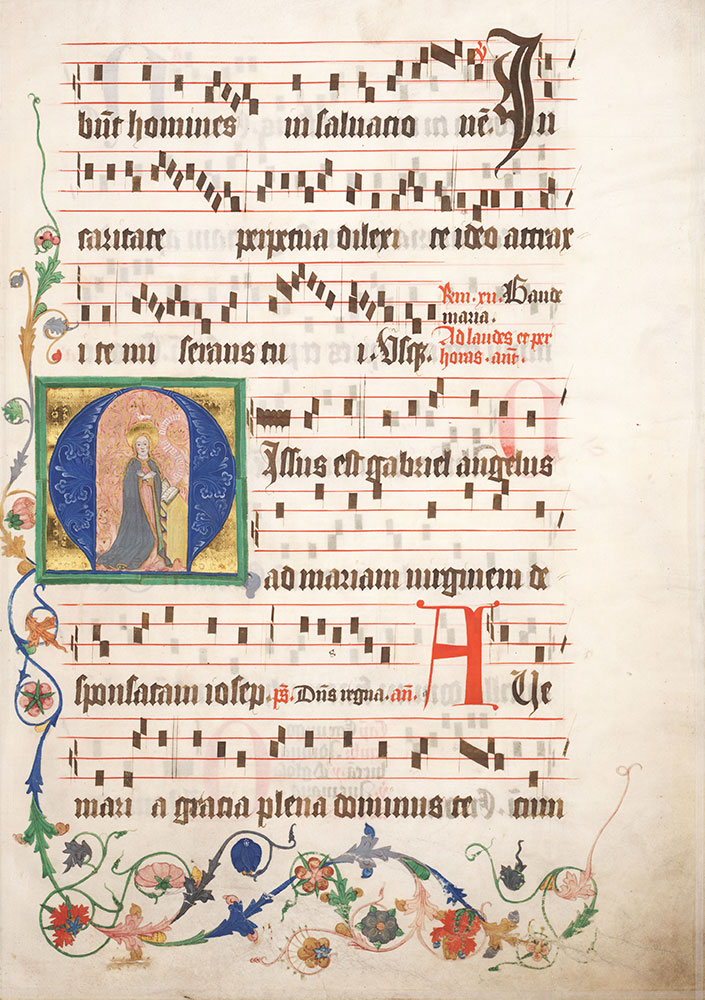 bu̅t homines in saluacio ne̅. ℣ In
caritate perpetua dilexi te ideo attrax
i te mi serans tu i. Usq̅.
Rm. xii. Gaude
maria.
Ad laudes et per
horas. an̅t.
Missus est gabriel angelus
ad mariam uirginem de
sponsatam iosep. ps̅. Dn̅s regna. an̅. A Ue
mari a gracia plena dominus te cum